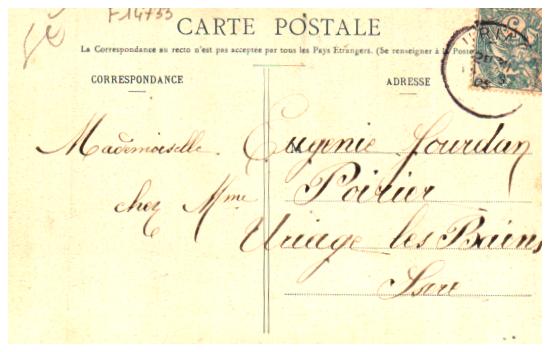 F14733
CARTE POSTALE
La Correspondance au recto n'est pas acceptée par tous les Pays Etrangers. (Se renseigner à la Poste
CORRESPONDANCE
ADRESSE
Mademoiselle Eugenie Jourdan
chez Mme Poirier
Uriage les Bains
Isère